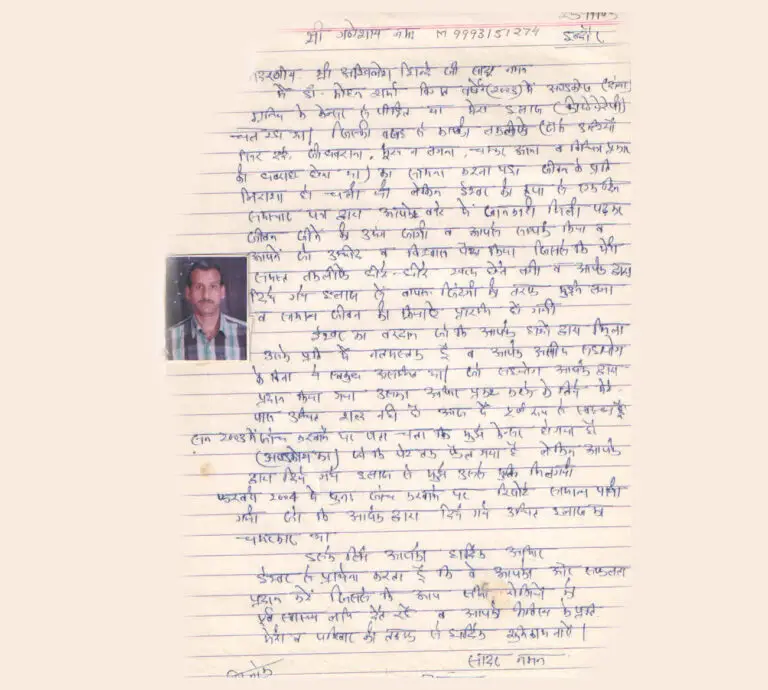 श्री गणेशाय नमः M 9993151274 इन्दौर
आदरणीय श्री अखिलेश जी सादर नमन
मैं डॉ. मोहन शर्मा वर्ष (2003) में अण्डकोष
के केन्सर से पीड़ित था मेरा इलाज (कीमोथेरेपी)
चल रहा था। जिसकी वजह से काफी तकलीफे
सिर दर्द, जी घबराना, भूख न लगना, चक्कर आना व विभिन्न प्रकार
का सामना करना पड़ा जीवन के प्रति
निराशा हो चली थी लेकिन ईश्वर की कृपा से एक दिन
समाचार पत्र द्वारा आपके बारे में जानकारी मिली पढ़कर
जीवन जीने की जागी व आपसे सम्पर्क किया व
आपने जो उम्मीद व विश्वास पैदा किया जिससे कि मेरी
समस्त तकलीफे धीरे-धीरे खत्म होने लगी व आपके द्वारा
दिये गये इलाज से वापस जिंदगी की तरफ मुड़ने लगा
व सामान्य जीवन की क्रियाऐं प्रारम्भ हो गयी
ईश्वर का वरदान जो कि आपके हाथों द्वारा मिला
उसके प्रति मैं नतमस्तक हूँ व आपके असीम सहयोग
के बिना ये सबकुछ असंभव था। जो सहयोग आपके द्वारा
प्रदान किया गया उसका आभार प्रकट करने के लिये मेरे
पास उचित शब्द नहीं है आज मैं पूर्ण रूप से स्वस्थ हूँ
सन 2003 में जांच करवाने पर पता चला कि मुझे केन्सर हो गया है
(अण्डकोष का) जो कि पेट तक फैल गया है लेकिन आपके
द्वारा दिये गये इलाज से मुझे उससे मुक्ति मिल गयी
फरवरी 2004 में पुनः जांच करवाने पर रिपोर्ट सामान्य पायी
गयी जो कि आपके द्वारा दिये गये उचित इलाज का
चमत्कार था
इसके लिये आपका हार्दिक आभार
ईश्वर से प्रार्थना करता हूँ कि वे आपको और सफलता
प्रदान करें जिससे कि आप सभी रोगियों को
पूर्ण स्वास्थ्य लाभ देते रहें व आपके भविष्य के प्रति
मेरी व परिवार की तरफ से हार्दिक शुभकामनाऐं।
सादर नमन
दिनांक